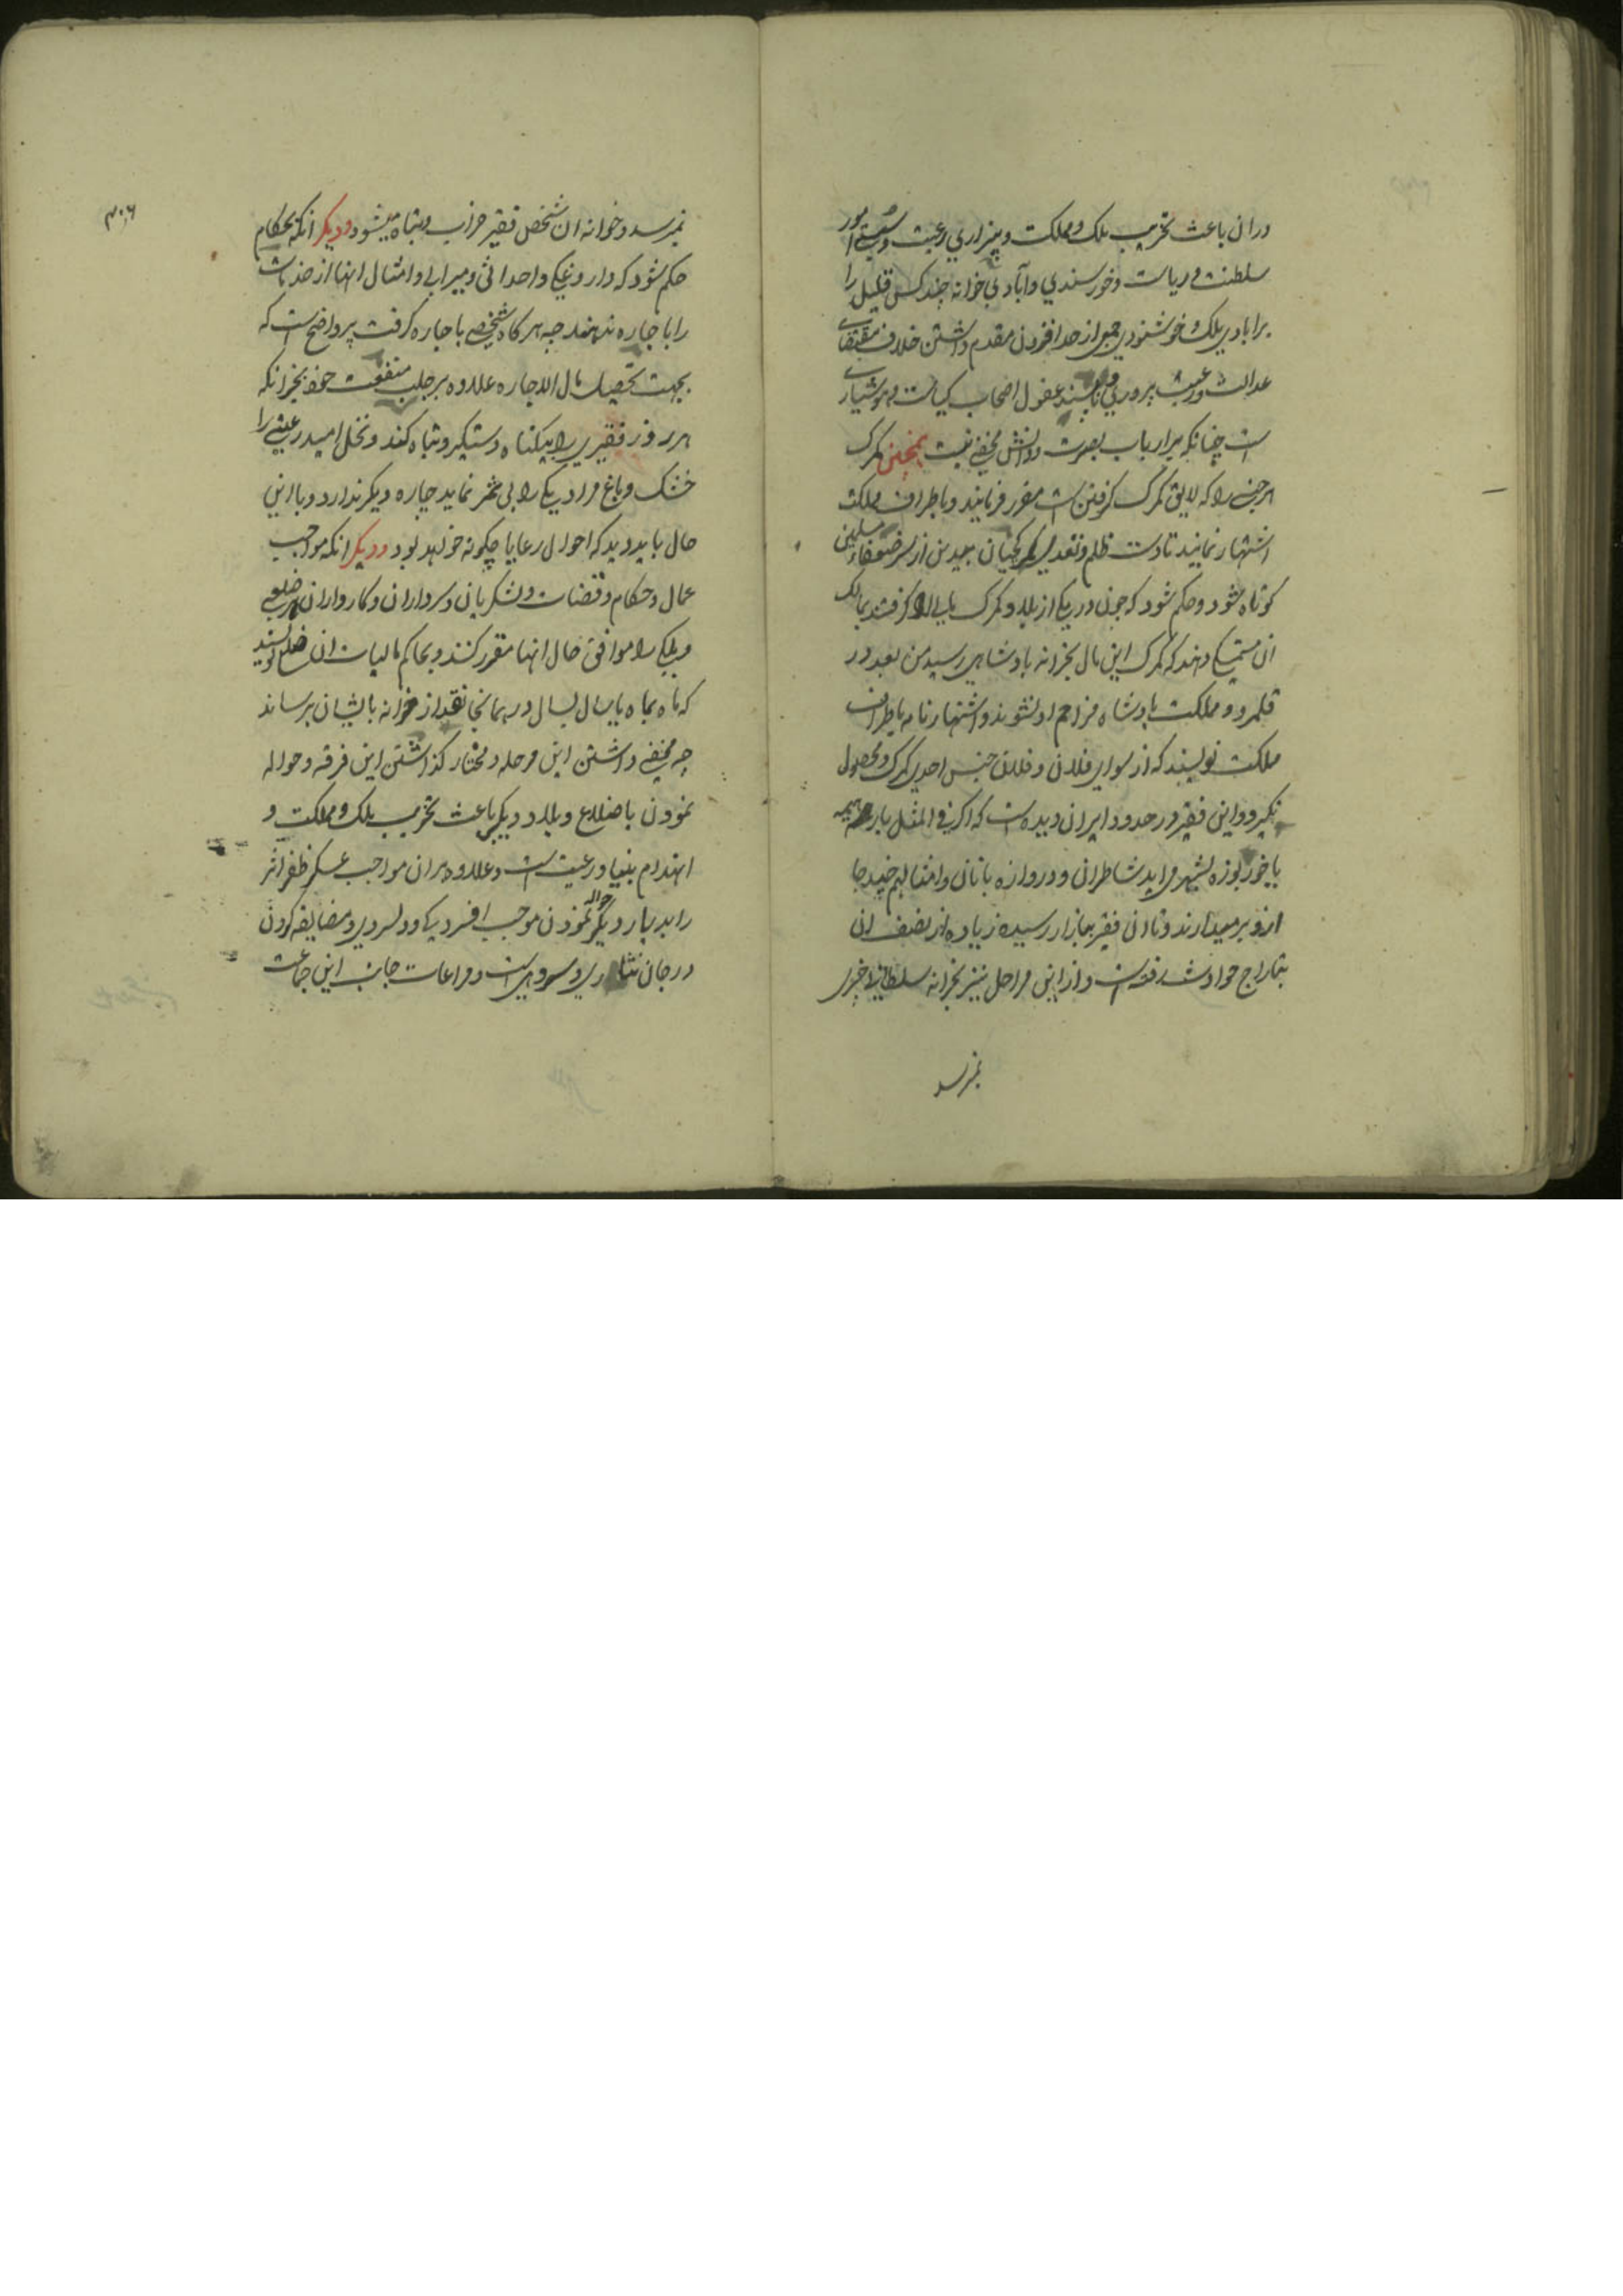 دران باعث تخریب ملک و مملکت و بیزاری رعیت و سستی امور
سلطنت و ریاست و خورسندی و آبادی خوانه چند کس قلیل را
برابادی ملک و خوشنودی جمعی از حد افزون مقدم داشتن خلاف مقتضای
عدالت و رعیت پروری و ناپسند عقول اصحاب کیاست و هوشیاری
است چنانکه برارباب بصیرت و دانش مخفی نیست همچنین کمرک
هر جنس را که لایق کمرک کرفتن است مقرر فرمایند و باطراف مملکت
اشتهار نمایند تا دست ظلم و تعدی کمرکچیان بیدین از سر ضعفاء مسلمین
کوتاه شود و حکم شود که چون در یکی از بلاد کمرک مالی را کرفتند بمالک
ان تمسکی دهند که کمرک این مال بخزانه بادشاهی رسید من بعد در
قلمرو و مملکت بادشاه مزاحم او نشوند و اشتهار نامه باطراف
مملکت نویسند که از سوای فلان و فلان جنس احدی کمرک و محصول
نکیرد و این فقیر در حدود ایران دیده است که اکر فی المثل بار همیه
یا خربوزه بشهر می اید شاطران و دروازه بانان و امثالهم چند جا
ازو برمیدارند و تا ان فقیر ببازار رسیده زیاده از نصف ان
بتاراج حوادث رفته است و از این مراحل نیز بخزانه سلطانی چیزی
نمیرسد
۳۰۶
نمیرسد و خوانه ان شخص فقیر خراب و تباه میشود و دیکر انکه بحکام
حکم شود که داروغکی و احداثی و میرابی و امثال اینها از خدمات
را باجاره ندهند چه هر کاه شخصی باجاره کرفت پر واضح است که
بجهت تحصیل مال الاجاره علاوه بر جلب منفعت خود بجز انکه
هر روز فقیری را بیکناه دستکیر و تباه کند و نخل امید رعیتی را
خشک و باغ مراد یکی را بی ثمر نماید چاره دیکر ندارد و با این
حال باید دید که احوال رعایا چکونه خواهد بود و دیکر انکه مواجب
عمال و حکام و قضات و لشکریان و سرداران و کارداران هر ضلعی
و ملکی را موافق حال انها مقرر کنند و بحاکم مالیات ان ضلع نویسند
که ماه بماه یا سال بسال در همانجا نقد از خزانه بایشان برساند
چه مخفی داشتن این مرحله و مختار کذاشتن این فرقه و حواله
نمودن باضلاع و بلاد دیکر باعث تخریب ملک و مملکت و
انهدام بنیاد رعیت است و علاوه بران مواجب عسکر ظفر اثر
را بدیار دیکر حواله نمودن موجب افسردکی و دلسردی و مضایقه کردن
در جان نثاری و سروریست و مراعات جانب این جماعت